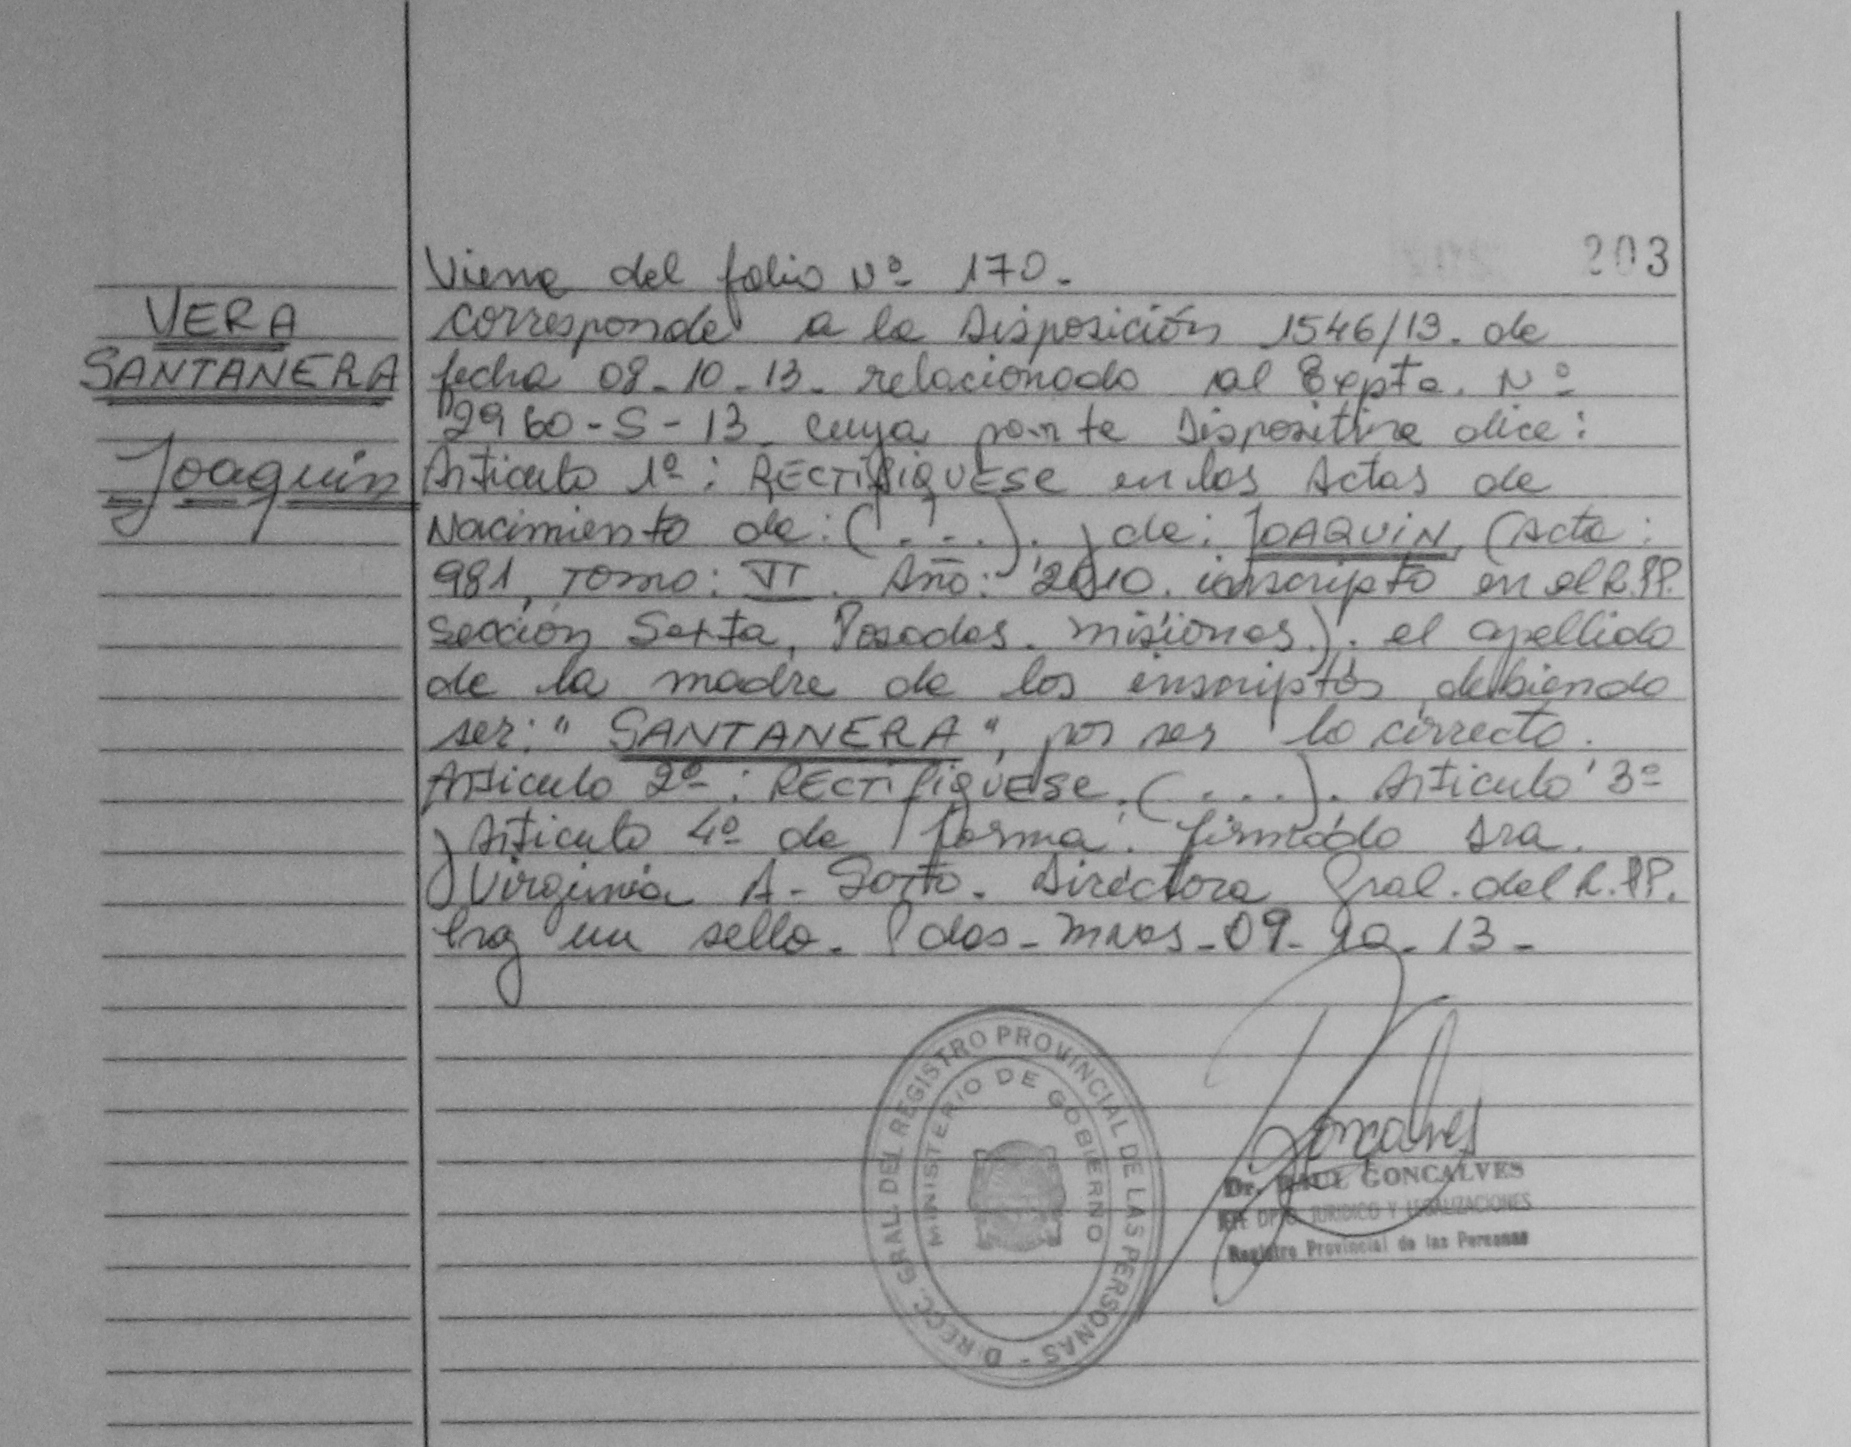 203
Viene del folio Nº 170-
VERA
SANTANERA
Joaquin
corresponde a la Disposición 1546/13. de
fecha 08-10-13- relacionado al Expte. Nº
2960-S-13. cuya parte Dispositiva dice:
Articulo 1º: RECTIFIQUESE en las Actas de
Nacimiento de: (...). y de: JOAQUIN, (Acta:
981, Tomo: VI. Año: 2010. inscripto en el R.PP.
Sección Sexta, Posadas. Misiones). el apellido
de la madre de los inscriptos, debiendo
ser: "SANTANERA", por ser lo correcto.
Articulo 2º: RECTIFIQUESE. (....). Articulo 3º
y Articulo 4º de forma. firmado Sra.
Virginia A- Directora Gral. del R.PP.
hay un sello. Pdas-Mnes-09-10-13-
DIRECC. GRAL. DEL REGISTRO PROVINCIAL DE LAS PERSONAS -
MINISTERIO DE GOBIERNO
Goncalves
Dr. RAUL GONCALVES
JEFE DPTO. JURIDICO Y LEGALIZACIONES
Registro Provincial de las Personas